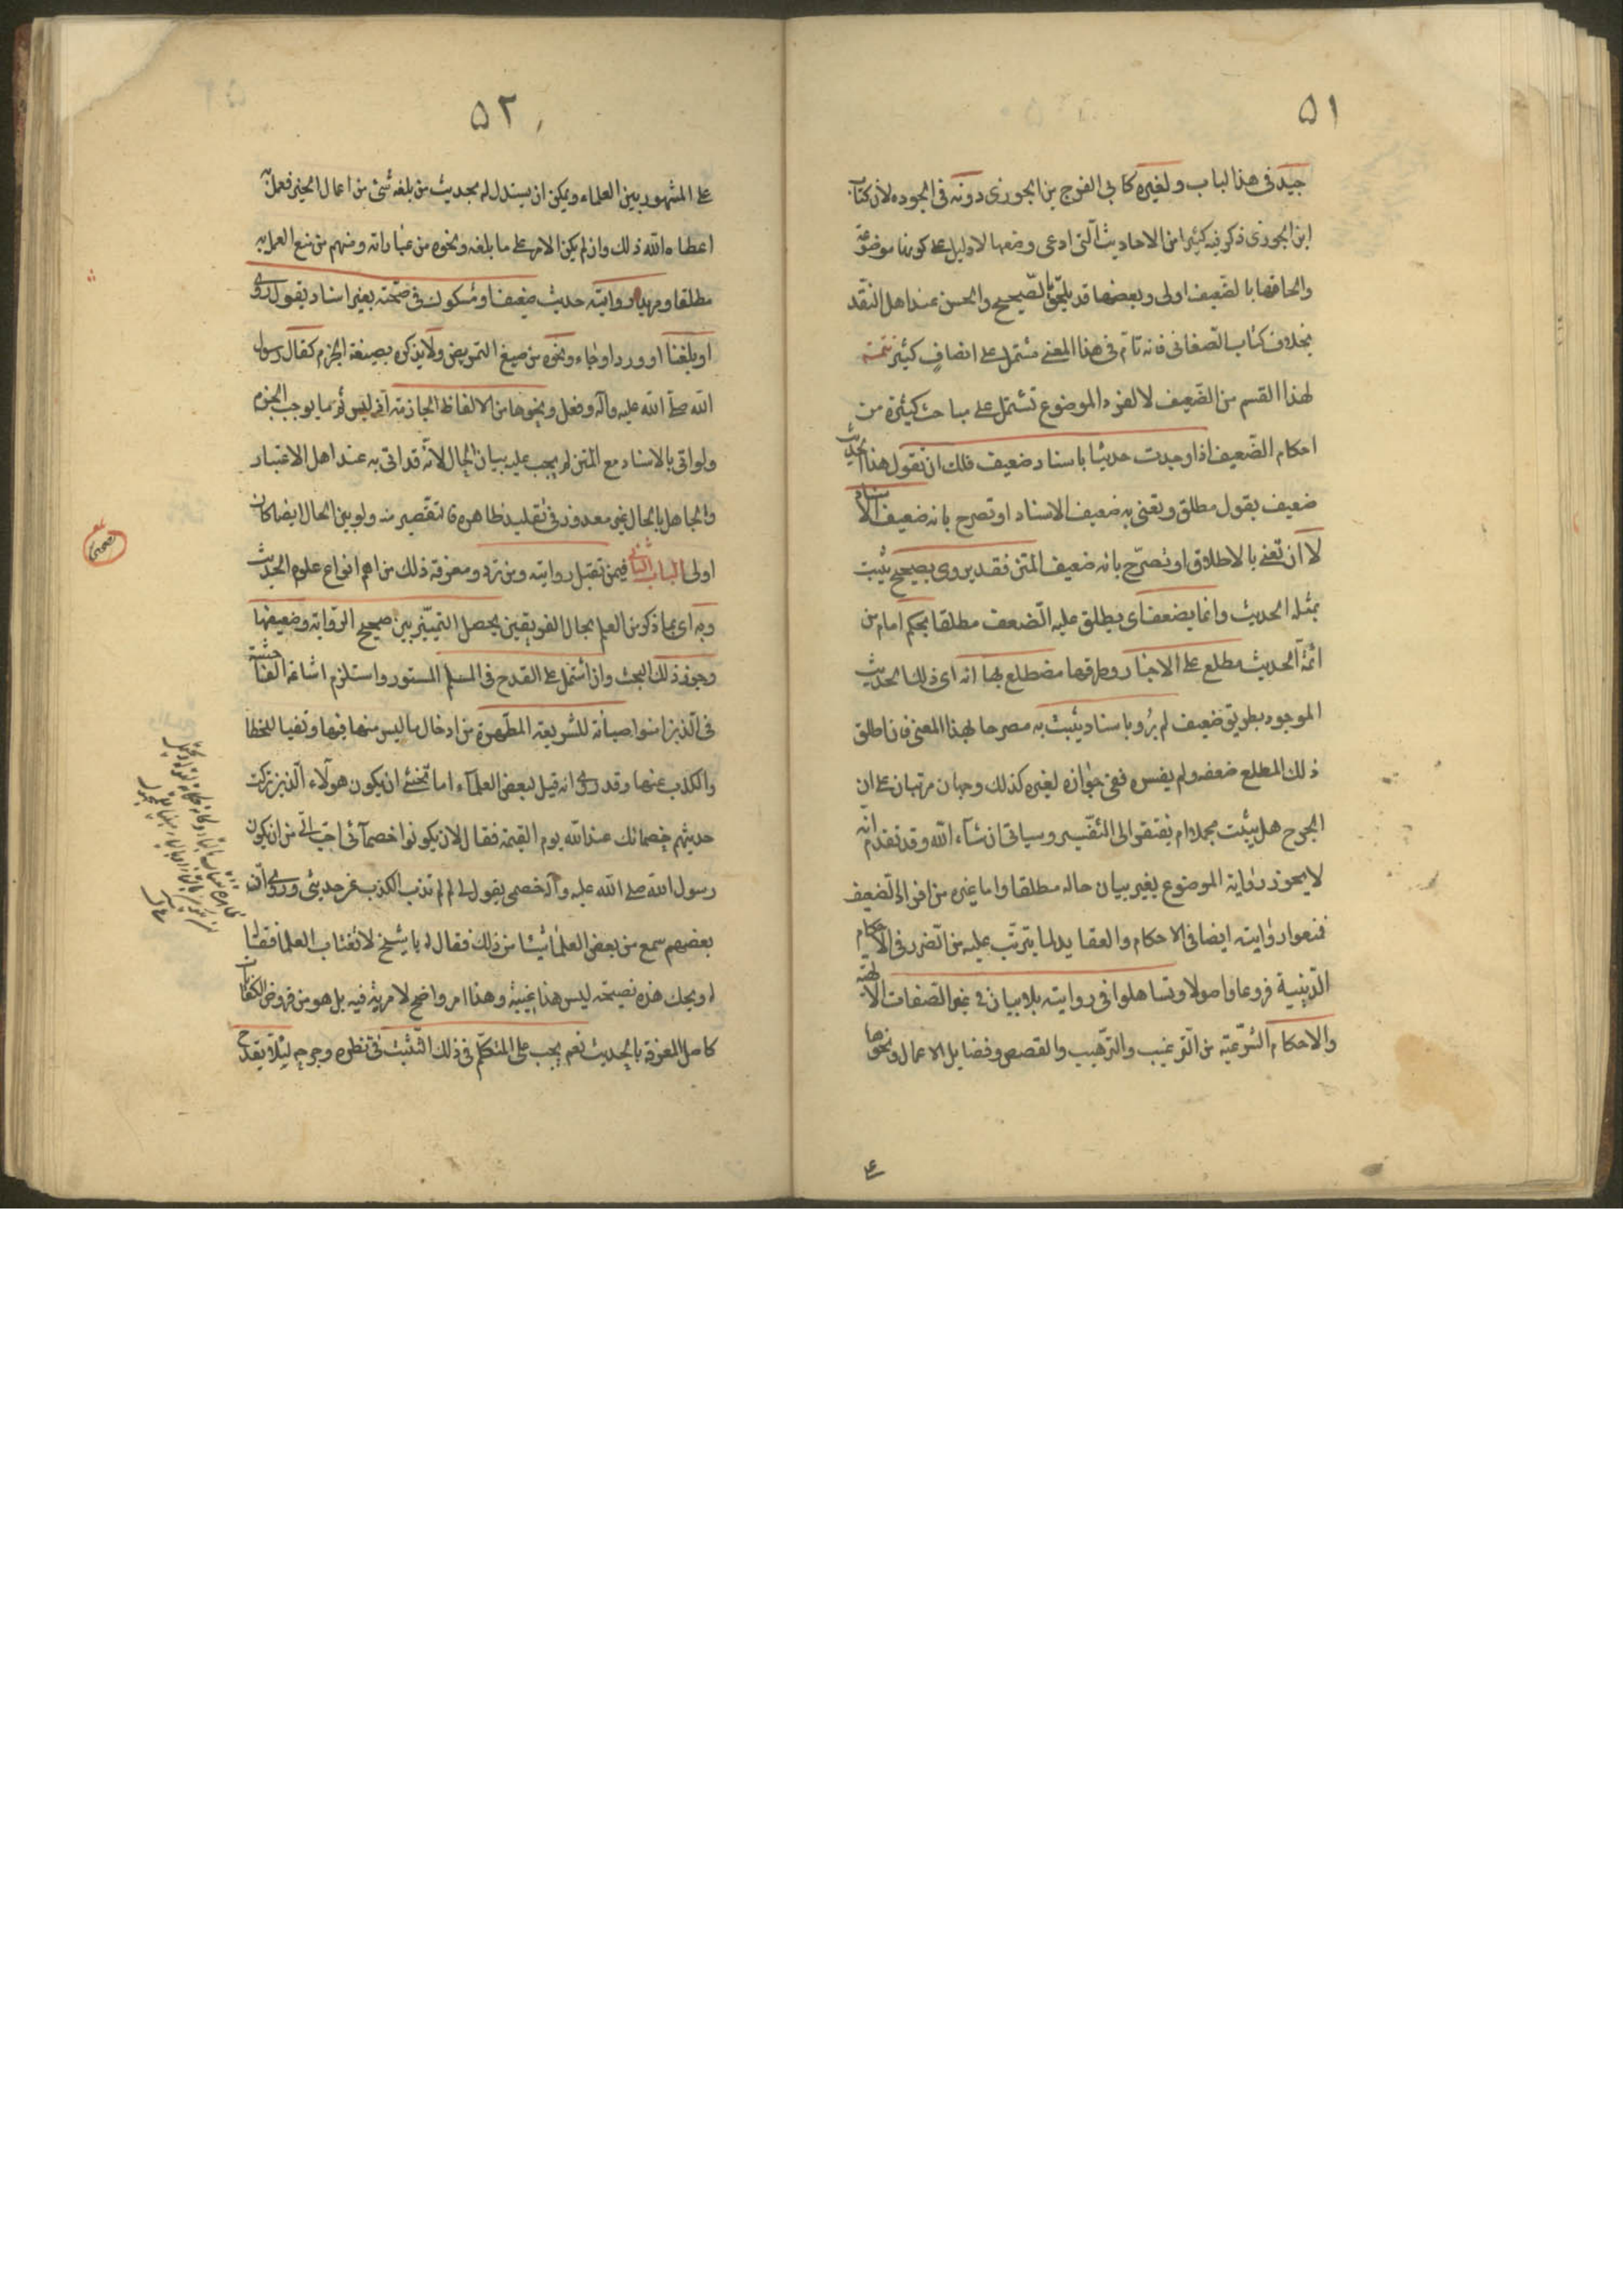 ٥١
جيد فى هذا الباب ولغيره كابى الفرج بن الجوزى دونه فى الجوده لان كتاب
ابن الجوزى ذكر فيه كثيرا من الاحاديث التى ادعى وضعها لا دليل على كونها موضوعة
والحاقها بالضعيف اولى وبعضها قد يلحق بالصّحيح والحسن عند اهل النقد
بخلاف كتاب الصّغانى فانه تام فى هذا المعنى مشتمل على انصافٍ كثير تتمة
لهذا القسم من الضّعيف لا الفرد الموضوع تشتمل على مباحث كثيرة من
احكام الضّعيف اذا وجدت حديثا باسناد ضعيف فلك ان تقول هذا الحديث
ضعيف بقول مطلق وتعنى به ضعيف الاسناد او تصرح بانه ضعيف الاسناد
لا ان تعنى بالاطلاق او تصرّح بانه ضعيف المتن فقد يروى بصحيح يثبت
بمثله الحديث وانما يضعف اى يطلق عليه الضعف مطلقا بحكم امام من
ائمة الحديث مطلع على الاخبار وطرقها مضطلع بها انه اى ذلك الحديث
الموجود بطريق ضعيف لم يُرو باسناد يثبت به مصرحا بهذا المعنى فان اطلق
ذلك المطلع ضعفه ولم يفسره ففى جوازه لغيره كذلك وجهان مرتبان على ان
الجرح هل يثبت مجملا ام يفتقر الى التفسير وسياتى ان شاء الله وقد تقدم انه
لا يجوز رواية الموضوع بغير بيان حاله مطلقا واما غيره من افراد الضعيف
فمنعوا روايته ايضا فى الاحكام والعقايد لما يترتب عليه من الضرر فى الاحكام
الدّينية فروعا واصولا وتساهلوا فى روايته بلا بيان فى غير الصّفات الالهية
والاحكام الشّرعيّة من التّرغيب والتّرهيب والقصص وفضايل الاعمال ونحوها
٥٢
على المشهور بين العلماء ويمكن ان يستدل له بحديث من بلغه شئ من اعمال الخير فعمله
اعطاه الله ذلك وان لم يكن الامر على ما بلغه ونحوه من عباراته ومنهم من منع العمل به
مطلقا ومريد رواية حديث ضعيف او مشكوك فى صحّته بغير اسناد يقول روى
او بلغنا او ورد او جاء ونحوه من صيغ التمريض ولا يذكره بصيغة الجزم كقال رسول
الله صلى الله عليه وآله وفعل ونحوها من الالفاظ الجازمة اذ ليس ثَم ما يوجب الجزم
ولو اتى بالاسناد مع المتن لم يجب عليه بيان الحال لانّه قد اتى به عند اهل الاعتبار
والجاهل بالحال غير معذور فى تقليد ظاهره فالتقصير منه ولو بين الحال ايضا كان
اولى الباب الثانى فيمن تقبل روايته ومن ترد ومعرفة ذلك من اهم انواع علوم الحديث
وبه اى بما ذكر من العلم بحال الفريقين يحصل التمييز بين صحيح الرّواية وضعيفها
وجوز ذلك البحث وان اشتمل على القدح فى المسلم المستور واستلزم اشاعة الفاحشة
فى الّذين آمنوا صيانة للشّريعة المطهّرة من ادخال ما ليس منها فيها ونفيا للخطا
والكذب عنها وقد روى انه قيل لبعض العلماء اما تخشى ان يكون هؤلاء الذين تركت
حديثهم خصمائك عند الله يوم القيمة فقال لان يكونوا خصمآئى احب الىّ من ان يكون
رسول الله صلى الله عليه وآله خصمى يقول لى لم لم تذب الكذب عن حديثى وروى ان
بعضهم سمع من بعض العلماء شيئا من ذلك فقال له يا شيخ لا تغتاب العلما فقال
له ويحك هذه نصيحة ليس هذا غيبة وهذا امر واضح لا مرية فيه بل هو من فروض الكفايات
كاصل المعرفة بالحديث نعم يجب على المتكلّم فى ذلك التّثبّت فى نظره وجرحه لئلّا يقدح